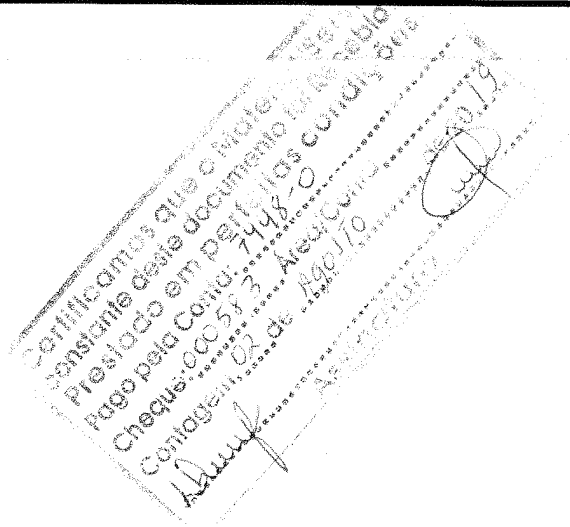 Certificamos que o Mater
constante deste documento foi Recebido
Prestado em perfeitas condições
Pago pela Conta: 7448-0
Cheque: 000583 Area/Coord
Contagem, 02 de Agosto de 2019
Assinatura